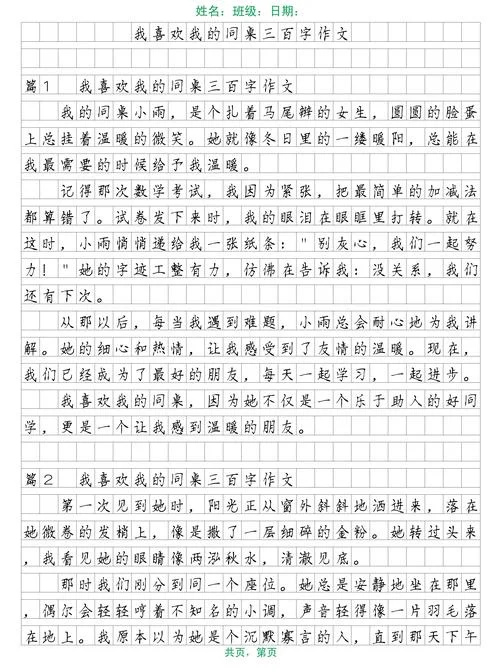 姓名：班级：日期：
我喜欢我的同桌三百字作文
篇1 我喜欢我的同桌三百字作文
我的同桌小雨，是个扎着马尾辫的女生，圆圆的脸蛋
上总挂着温暖的微笑。她就像冬日里的一缕暖阳，总能在
我最需要的时候给予我温暖。
记得那次数学考试，我因为紧张，把最简单的加减法
都算错了。试卷发下来时，我的眼泪在眼眶里打转。就在
这时，小雨悄悄递给我一张纸条："别灰心，我们一起努
力！"她的字迹工整有力，仿佛在告诉我：没关系，我们
还有下次。
从那以后，每当我遇到难题，小雨总会耐心地为我讲
解。她的细心和热情，让我感受到了友情的温暖。现在，
我们已经成为了最好的朋友，每天一起学习，一起进步。
我喜欢我的同桌，因为她不仅是一个乐于助人的好同
学，更是一个让我感到温暖的朋友。
篇2 我喜欢我的同桌三百字作文
第一次见到她时，阳光正从窗外斜斜地洒进来，落在
她微卷的发梢上，像是撒了一层细碎的金粉。她转过头来
，我看见她的眼睛像两泓秋水，清澈见底。
那时我们刚分到同一个座位。她总是安静地坐在那里
，偶尔会轻轻哼着不知名的小调，声音轻得像一片羽毛落
在地上。我原本以为她是个沉默寡言的人，直到那天下午
共页，第页